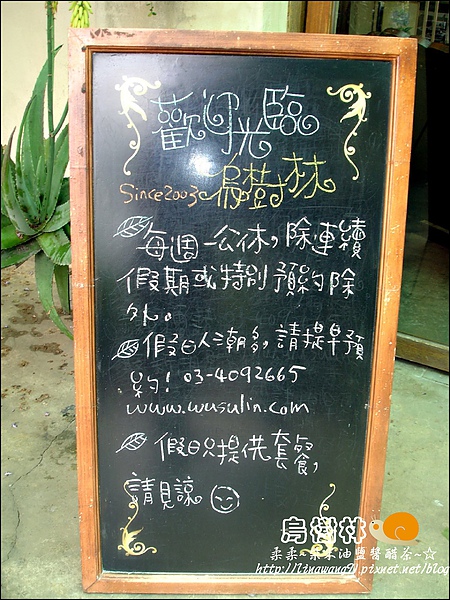 歡迎光臨
Since2003 烏樹林
每週一公休,除連續
假期或特別預約除
外。
假日人潮多,請提早預
約! 03-4092665
www.wusulin.com
假日只提供套餐,
請見諒
烏樹林
柔柔-柴米油鹽醬醋茶~☆
http://linawang71.pixnet.net/blog